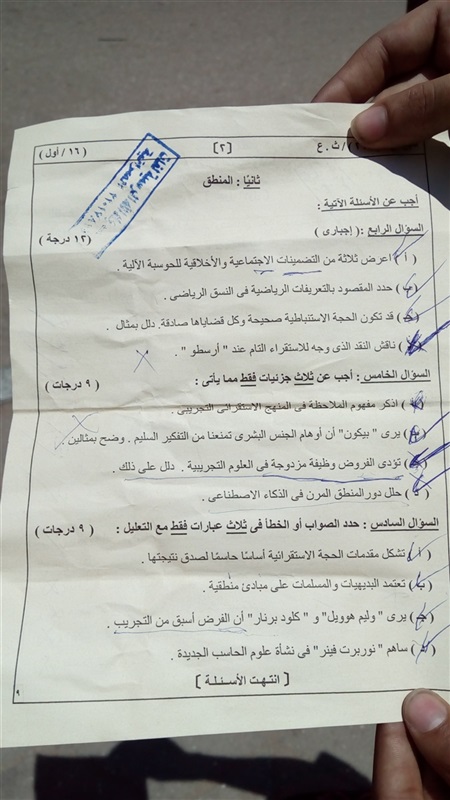 ١٦/ث.ع [٢] (١٦/أول)
ثانيًا : المنطق
أجب عن الأسئلة الآتية :
السؤال الرابع :( إجبارى ) ( ١٢ درجة )
( أ ) اعرض ثلاثة من التضمينات الاجتماعية والأخلاقية للحوسبة الآلية .
(ب) حدد المقصود بالتعريفات الرياضية فى النسق الرياضى .
(جـ) قد تكون الحجة الاستنباطية صحيحة وكل قضاياها صادقة. دلل بمثال .
(د) ناقش النقد الذى وجه للاستقراء التام عند " أرسطو " .
السؤال الخامس : أجب عن ثلاث جزئيات فقط مما يأتى : ( ٩ درجات )
( أ ) اذكر مفهوم الملاحظة فى المنهج الاستقرائى التجريبى .
(ب) يرى " بيكون" أن أوهام الجنس البشرى تمنعنا من التفكير السليم . وضح بمثالين .
(جـ) تؤدى الفروض وظيفة مزدوجة فى العلوم التجريبية . دلل على ذلك .
( د ) حلل دور المنطق المرن فى الذكاء الاصطناعى .
السؤال السادس : حدد الصواب أو الخطأ فى ثلاث عبارات فقط مع التعليل : ( ٩ درجات )
( أ ) تشكل مقدمات الحجة الاستقرائية أساسًا حاسمًا لصدق نتيجتها .
(ب) تعتمد البديهيات والمسلمات على مبادئ منطقية .
(جـ) يرى " وليم هوويل" و " كلود برنار" أن الفرض أسبق من التجريب .
( د ) ساهم " نوربرت فينر" فى نشأة علوم الحاسب الجديدة .
[ انتهت الأسئلة ]
٩